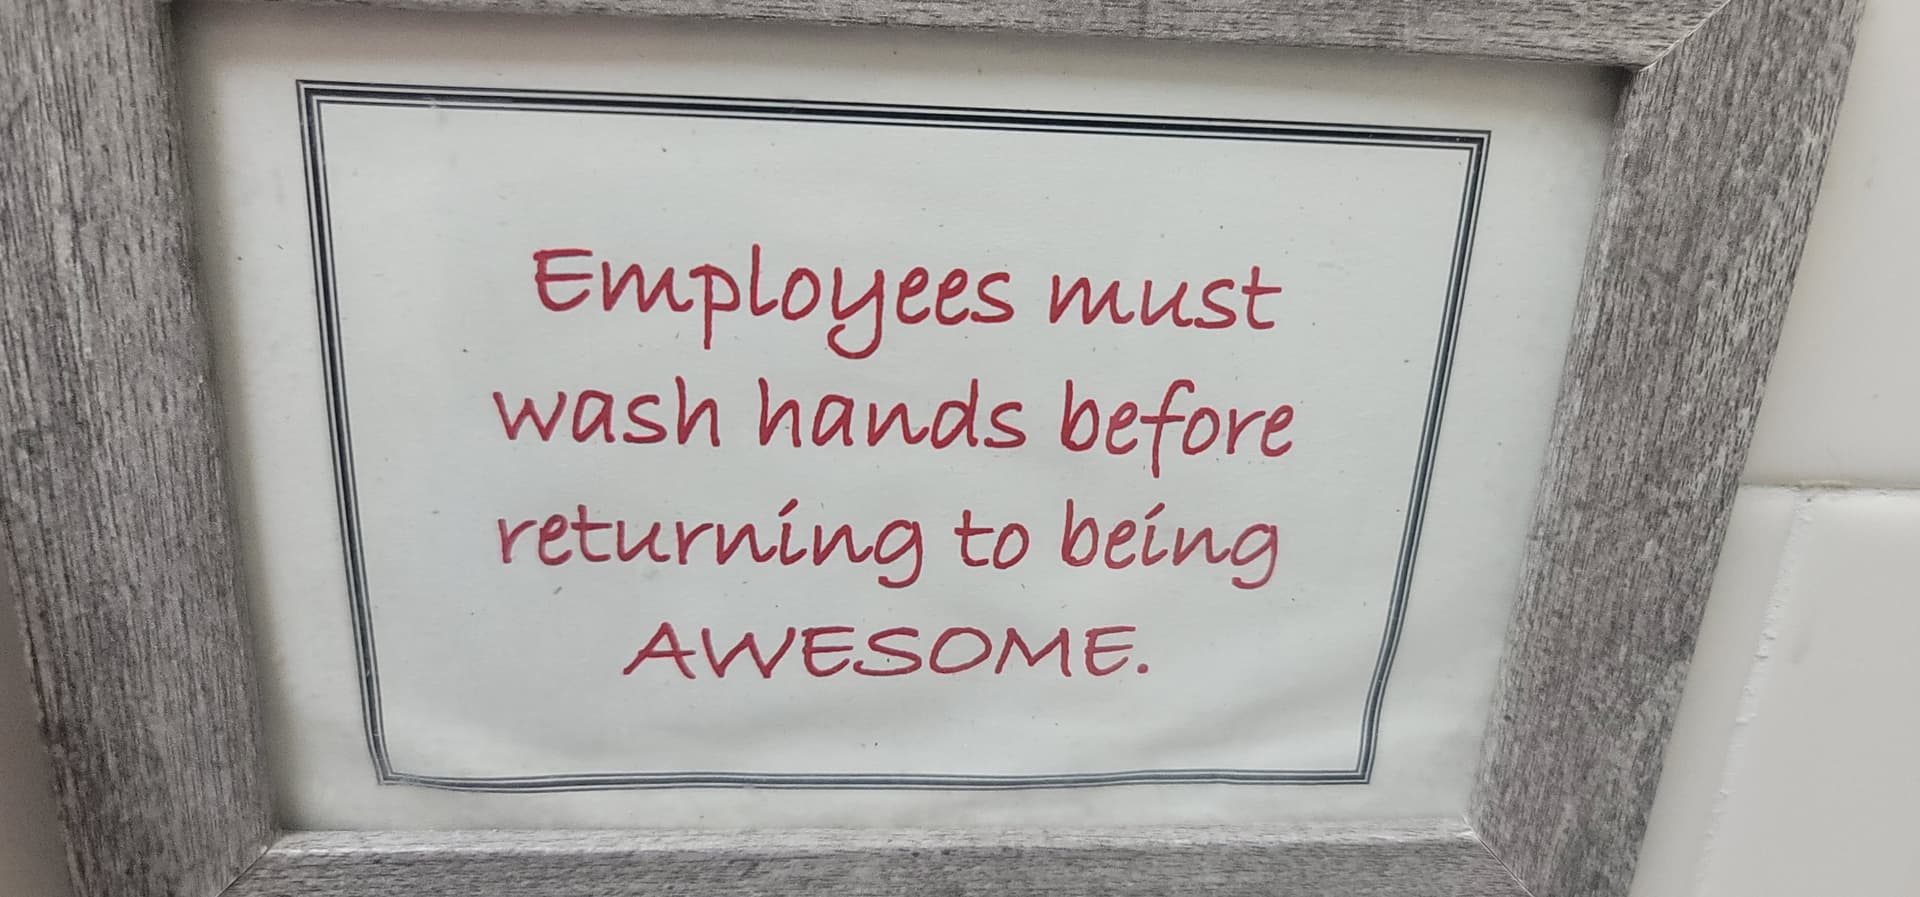 Employees must
wash hands before
returning to being
AWESOME.